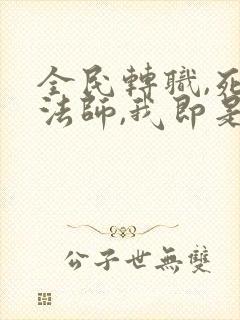 全民轉職,死
法師,我即是
公子世無雙